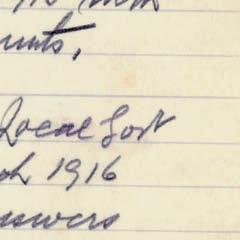 unts,
Local Govt
ch 1916
nswers